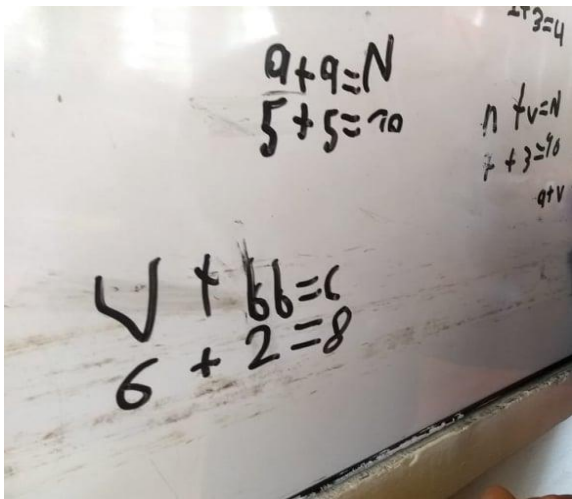 1+3=4
a+a=N
5+5=10
n+v=N
+3=10
a+v
V+bb=6
6+2=8